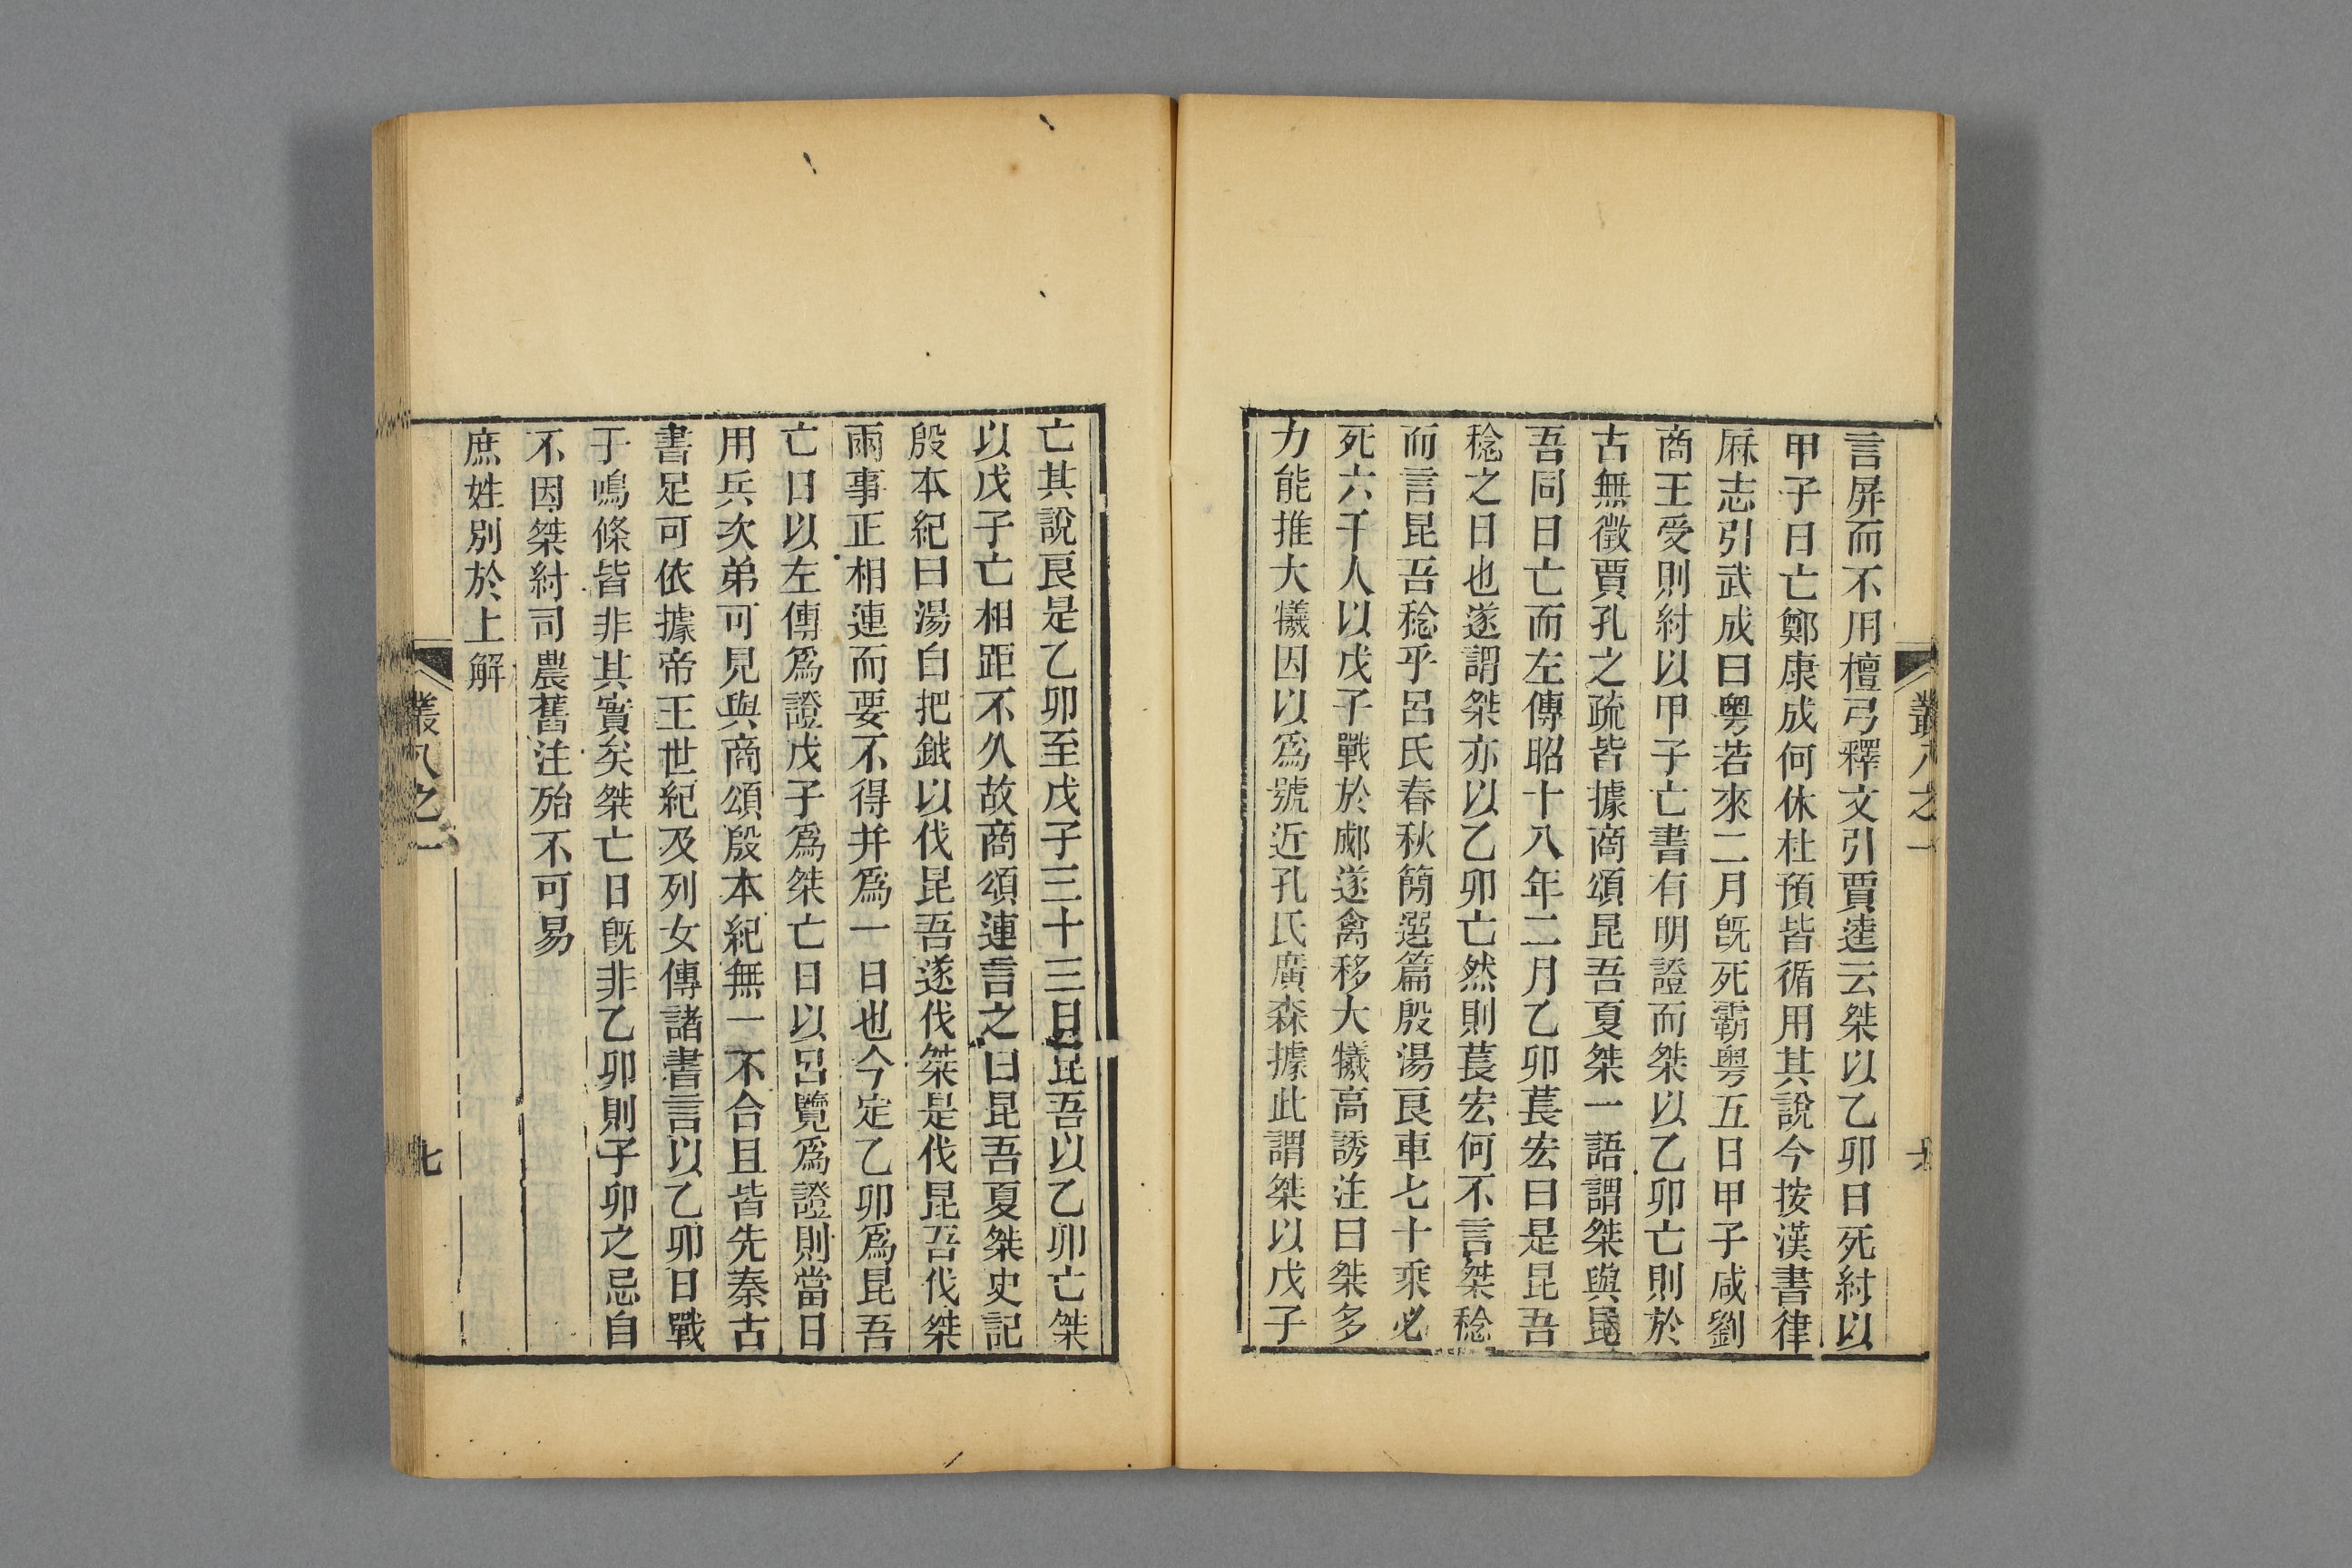 叢八之一
言屏而不用檀弓釋文引賈逵云桀以乙卯日死紂以
甲子日亡鄭康成何休杜預皆循用其說今按漢書律
厤志引武成曰粵若來二月旣死霸粵五日甲子咸劉
商王受則紂以甲子亡書有明證而桀以乙卯亡則於
古無徵賈孔之疏皆據商頌昆吾夏桀一語謂桀與昆
吾同日亡而左傳昭十八年二月乙卯萇宏曰是昆吾
稔之日也遂謂桀亦以乙卯亡然則萇宏何不言桀稔
而言昆吾稔乎呂氏春秋簡選篇殷湯良車七十乘必
死六千人以戊子戰於郕遂禽移大犧高誘注曰桀多
力能推大犧因以爲號近孔氏廣森據此謂桀以戊子
亡其說良是乙卯至戊子三十三日昆吾以乙卯亡桀
以戊子亡相距不久故商頌連言之曰昆吾夏桀史記
殷本紀曰湯自把鉞以伐昆吾遂伐桀是伐昆吾伐桀
兩事正相連而要不得并爲一日也今定乙卯爲昆吾
亡日以左傳爲證戊子爲桀亡日以呂覽爲證則當日
用兵次弟可見與商頌殷本紀無一不合且皆先秦古
書足可依據帝王世紀及列女傳諸書言以乙卯日戰
于鳴條皆非其實矣桀亡日旣非乙卯則子卯之忌自
不因桀紂司農舊注殆不可易
庶姓別於上解
叢八之一
七